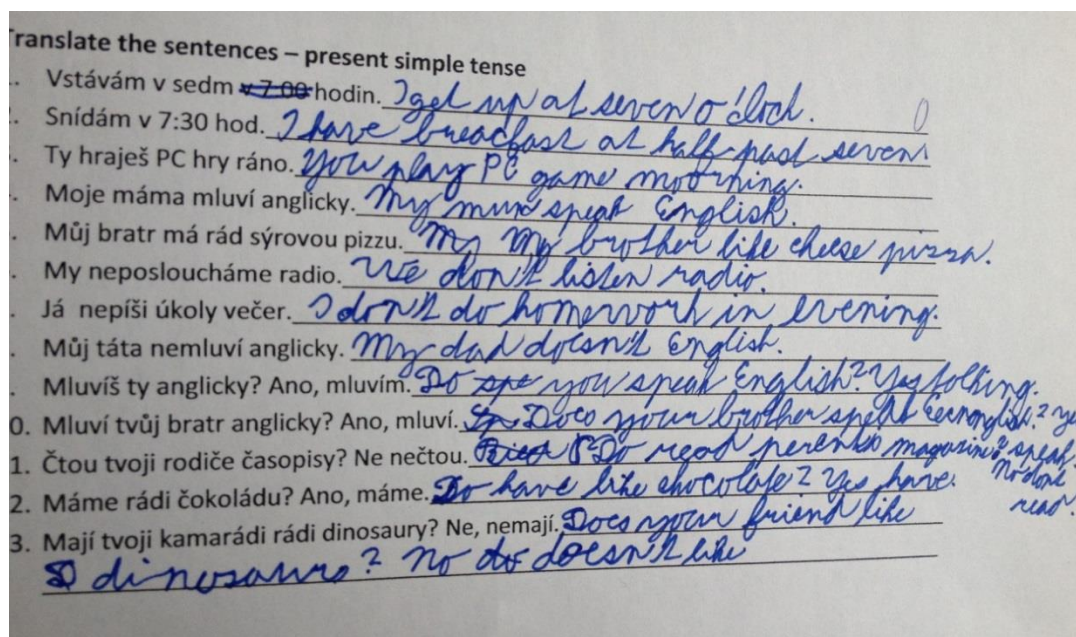 Translate the sentences – present simple tense
Vstávám v sedm v 7:00 hodin. I get up at seven o'clock. 0
Snídám v 7:30 hod. I have breacfast at half-past seven.
Ty hraješ PC hry ráno. You play PC game moorning.
Moje máma mluví anglicky. My mum speak English.
Můj bratr má rád sýrovou pizzu. My My brother like cheese pizza.
My neposloucháme radio. We don't listen radio.
Já nepíši úkoly večer. I don't do homework in evening.
Můj táta nemluví anglicky. My dad doesn't English.
Mluvíš ty anglicky? Ano, mluvím. Do spe you speak English? Yes tolking.
0. Mluví tvůj bratr anglicky? Ano, mluví. Does your brother speak english? ye
1. Čtou tvoji rodiče časopisy? Ne nečtou. Do read perents magazine? speak.
No dont
2. Máme rádi čokoládu? Ano, máme. Do have like chocolate? Yes, have. read.
3. Mají tvoji kamarádi rádi dinosaury? Ne, nemají. Does your friend like
dinosaurs? No do doesn't like